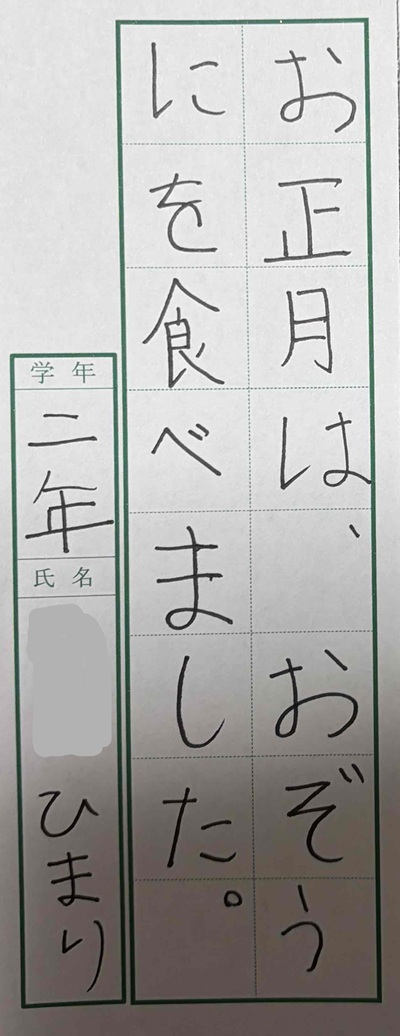 お正月は、おぞう
にを食べました。
学年
二年
氏名
ひまり